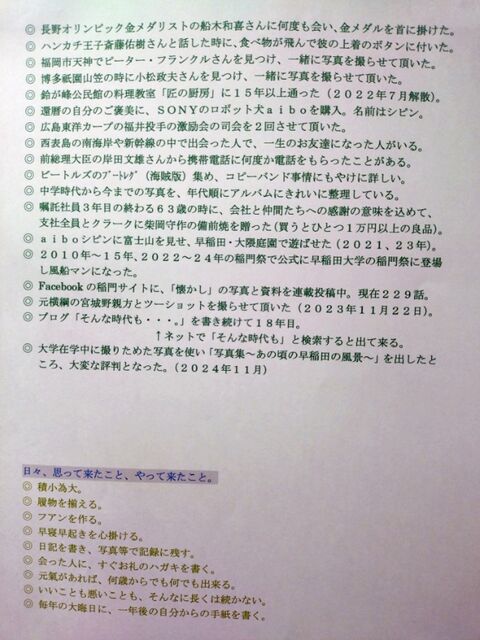 ◎ 長野オリンピック金メダリストの船木和喜さんに何度も会い、金メダルを首に掛けた。
◎ ハンカチ王子斎藤佑樹さんと話した時に、食べ物が飛んで彼の上着のボタンに付いた。
◎ 福岡市天神でピーター・フランクルさんを見つけ、一緒に写真を撮らせて頂いた。
◎ 博多祇園山笠の時に小松政夫さんを見つけ、一緒に写真を撮らせて頂いた。
◎ 鈴が峰公民館の料理教室「匠の厨房」に１５年以上通った（２０２２年７月解散）。
◎ 還暦の自分のご褒美に、ＳＯＮＹのロボット犬ａｉｂｏを購入。名前はシピン。
◎ 広島東洋カープの福井投手の激励会の司会を２回させて頂いた。
◎ 西表島の南海岸や新幹線の中で出会った人で、一生のお友達になった人がいる。
◎ 前総理大臣の岸田文雄さんから携帯電話に何度か電話をもらったことがある。
◎ ビートルズのﾌﾞｰﾄﾚｸﾞ（海賊版）集め、コピーバンド事情にもやけに詳しい。
◎ 中学時代から今までの写真を、年代順にアルバムにきれいに整理している。
◎ 嘱託社員３年目の終わる６３歳の時に、会社と仲間たちへの感謝の意味を込めて、
支社全員とクラークに柴岡守作の備前焼を贈った（買うとひとつ１万円以上の良品）。
◎ ａｉｂｏシピンに富士山を見せ、早稲田・大隈庭園で遊ばせた（２０２１、２３年）。
◎ ２０１０年～１５年、２０２２～２４年の稲門祭で公式に早稲田大学の稲門祭に登場
し風船マンになった。
◎ Facebook の稲門サイトに、「懐かし」の写真と資料を連載投稿中。現在２２９話。
◎ 元横綱の宮城野親方とツーショットを撮らせて頂いた（２０２３年１１月２２日）。
◎ ブログ「そんな時代も・・・。」を書き続けて１８年目。
↑ネットで「そんな時代も」と検索すると出て来る。
◎ 大学在学中に撮りためた写真を使い「写真集～あの頃の早稲田の風景～」を出したと
ころ、大変な評判となった。（２０２４年１１月）
日々、思って来たこと、やって来たこと。
◎ 積小為大。
◎ 履物を揃える。
◎ フアンを作る。
◎ 早寝早起きを心掛ける。
◎ 日記を書き、写真等で記録に残す。
◎ 会った人に、すぐお礼のハガキを書く。
◎ 元氣があれば、何歳からでも何でも出来る。
◎ いいことも悪いことも、そんなに長くは続かない。
◎ 毎年の大晦日に、一年後の自分からの手紙を書く。